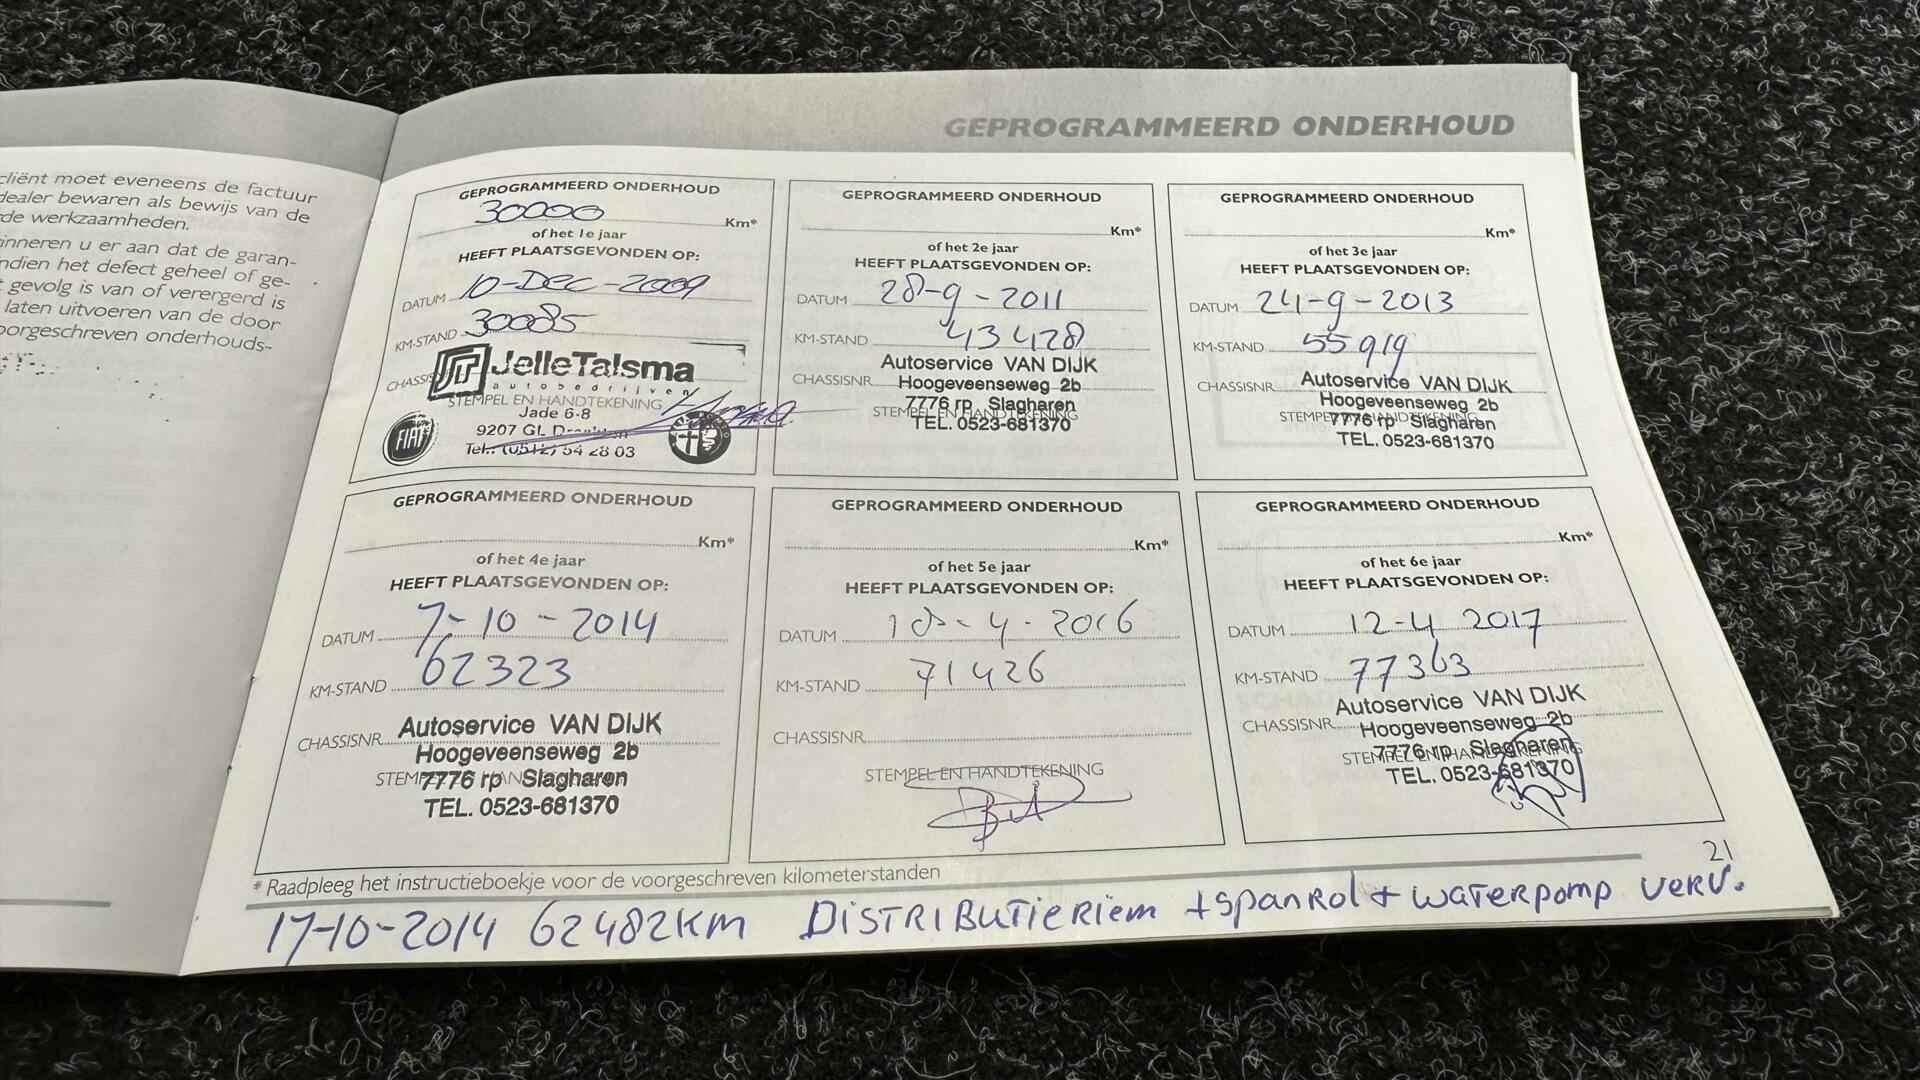 cliënt moet eveneens de factuur
dealer bewaren als bewijs van de
de werkzaamheden.
inneren u er aan dat de garan-
ndien het defect geheel of ge-
gevolg is van of verergerd is
laten uitvoeren van de door
oorgeschreven onderhouds-
GEPROGRAMMEERD ONDERHOUD
GEPROGRAMMEERD ONDERHOUD
30000 Km*
of het 1e jaar
HEEFT PLAATSGEVONDEN OP:
DATUM 10-DEC-2009
KM-STAND 30085
CHASSIS
JelleTalsma
autobedrijven
STEMPEL EN HANDTEKENING
Jade 6-8
9207 GL
Tel.: (0512) 54 28 03
FIAT
GEPROGRAMMEERD ONDERHOUD
Km*
of het 2e jaar
HEEFT PLAATSGEVONDEN OP:
DATUM 28-9-2011
KM-STAND 43428
CHASSISNR.
Autoservice VAN DIJK
Hoogeveenseweg 2b
7776 rp Slagharen
STEMPEL EN HANDTEKENING
TEL. 0523-681370
GEPROGRAMMEERD ONDERHOUD
Km*
of het 3e jaar
HEEFT PLAATSGEVONDEN OP:
DATUM 24-9-2013
KM-STAND 55919
CHASSISNR.
Autoservice VAN DIJK
Hoogeveenseweg 2b
STEMPEL EN HANDTEKENING
7776 rp Slagharen
TEL. 0523-681370
GEPROGRAMMEERD ONDERHOUD
Km*
of het 4e jaar
HEEFT PLAATSGEVONDEN OP:
DATUM 7-10-2014
KM-STAND 62323
CHASSISNR.
Autoservice VAN DIJK
Hoogeveenseweg 2b
7776 rp Slagharen
TEL. 0523-681370
GEPROGRAMMEERD ONDERHOUD
Km*
of het 5e jaar
HEEFT PLAATSGEVONDEN OP:
DATUM 18-4-2016
KM-STAND 71426
CHASSISNR.
STEMPEL EN HANDTEKENING
GEPROGRAMMEERD ONDERHOUD
Km*
of het 6e jaar
HEEFT PLAATSGEVONDEN OP:
DATUM 12-4 2017
KM-STAND 77363
CHASSISNR.
Autoservice VAN DIJK
Hoogeveenseweg 2b
7776 rp Slagharen
STEMPEL EN HANDTEKENING
TEL. 0523-681370
21
* Raadpleeg het instructieboekje voor de voorgeschreven kilometerstanden
17-10-2014 62482KM DISTRIBUTIERIEM + SPANROL + WATERPOMP VERV.